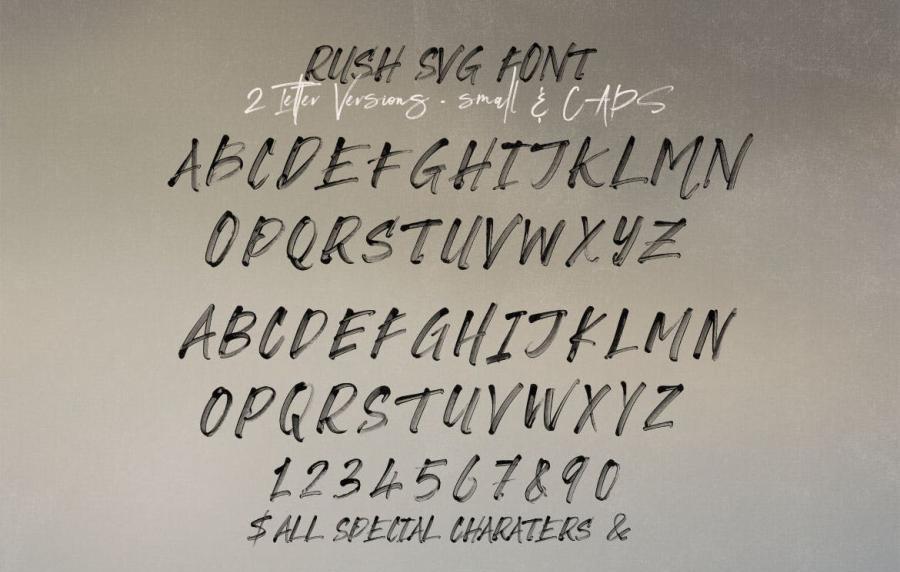 RUSH SVG FONT
2 letter Versions - small & CAPS
ABCDEFGHIJKLMN
OPQRSTUVWXYZ
ABCDEFGHIJKLMN
OPQRSTUVWXYZ
1234567890
$ ALL SPECIAL CHARATERS &